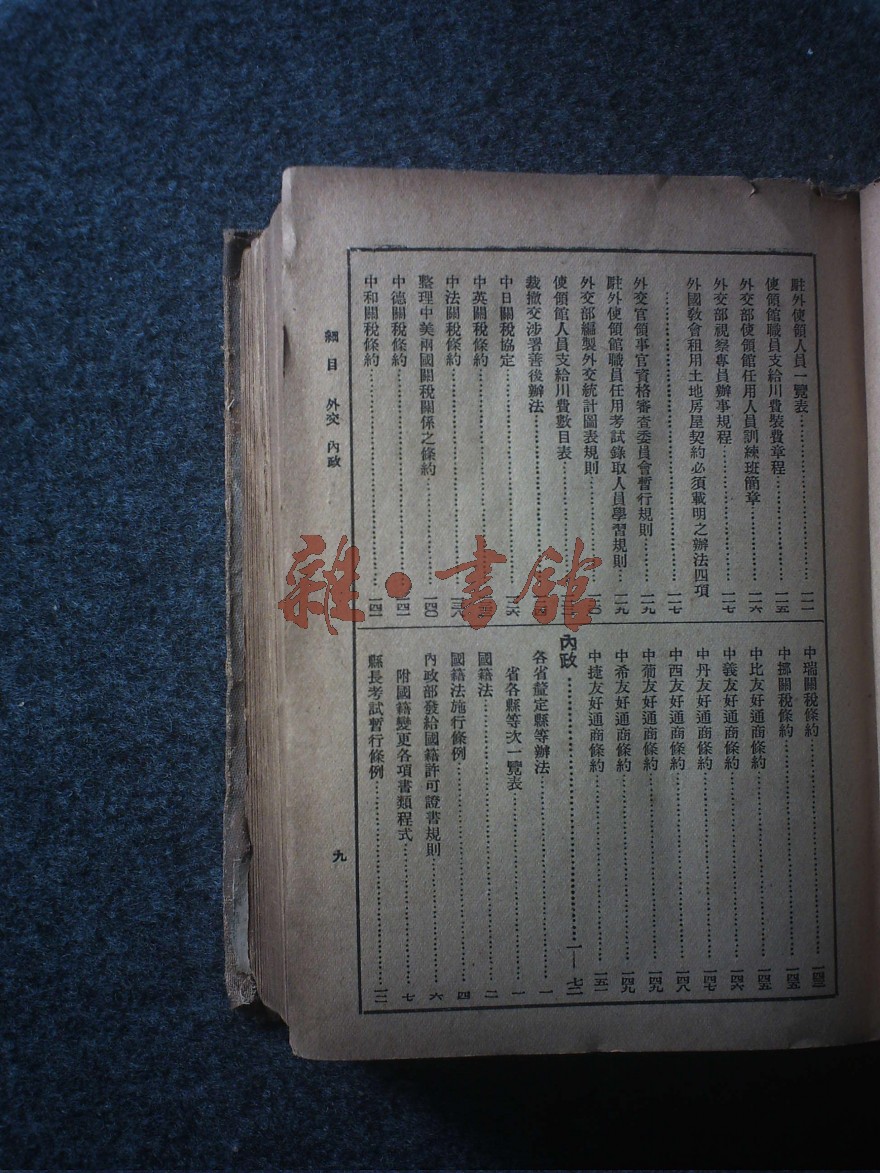 駐外使領人員一覽表
使領館職員支給川費裝費章程
外交部使領館任用人員訓練班簡章
外交部視察專員辦事規程
外國敎會租用土地房屋契約必須載明之辦法四項
外交官領事官資格審查委員會暫行規則
駐外使領館職員任用考試錄取人員學習規則
外交部編製外交統計圖表規則
使領館人員支給川費數目表
裁撤交涉署善後辦法
中日關稅協定
中英關稅條約
中法關稅條約
整理中美兩國關稅關係之條約
中德關稅條約
中和關稅條約
中瑞關稅條約
中挪關稅條約
中比友好通商條約
中義友好通商條約
中丹友好通商條約
中西友好通商條約
中葡友好通商條約
中希友好通商條約
中捷友好通商條約
內政 一—七二
各省釐定縣等辦法 一
省各縣等次一覽表 一
國籍法 二
國籍法施行條例 四
內政部發給國籍許可證書規則 六
附國籍變更各項書類程式 七
縣長考試暫行條例
細目 外交 內政
九
雜·書館